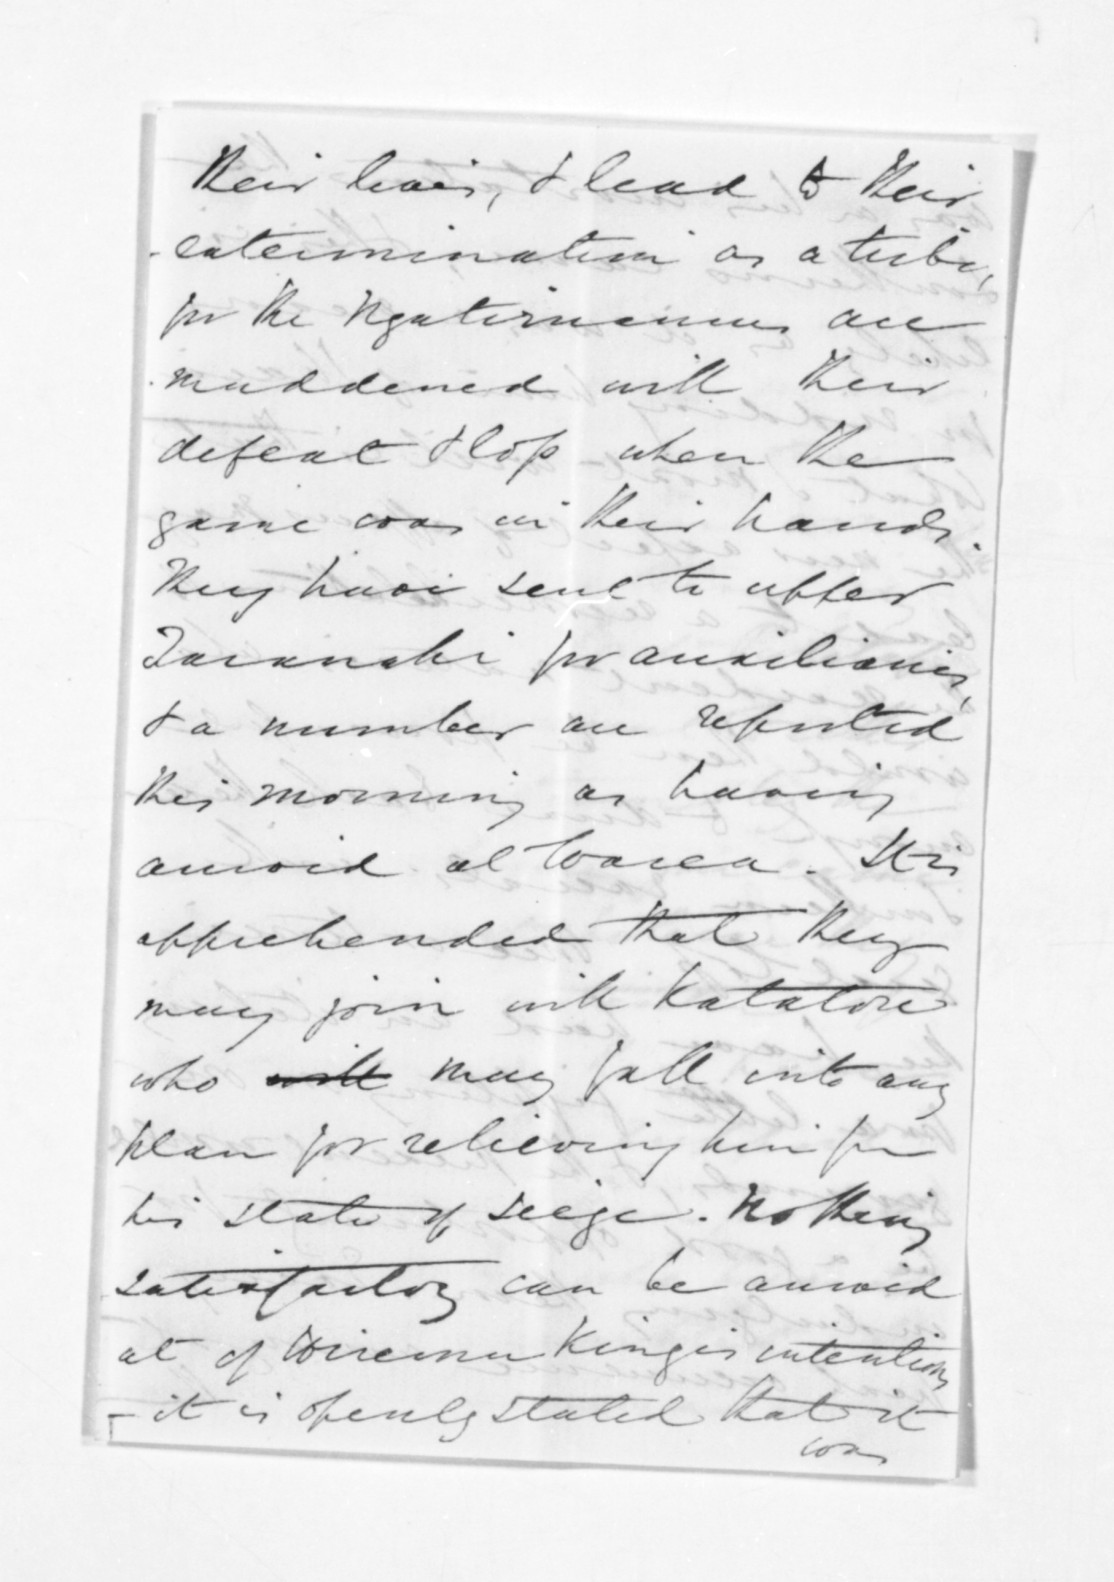 their lives, & lead to their
extermination as a tribe,
for the Ngatiruanuis are
maddened with their
defeat & loss when the
game was in their hands.
They have sent to upper
Taranaki for auxiliaries,
& a number are reported
this morning as having
arrived at Warea. It is
apprehended that they
may join with Katatore
who will may fall into any
plan for relieving him fm
his state of seige. Nothing
satisfactory can be arrived
at of Wiremu Kingis intentions
- it is openly stated that it
was